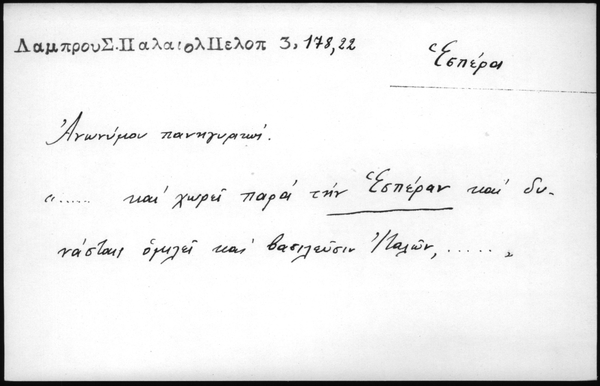 ΛαμπρουΣ.ΠαλαιολΠελοπ 3,178,22
Ἑσπέρα
Ἀνωνύμου πανηγυρικοί.
"...... καὶ χωρεῖ παρὰ τὴν Ἑσπέραν καὶ δυ-
νάσταις ὁμιλεῖ καὶ βασιλεῦσιν Ἰταλῶν, ....."